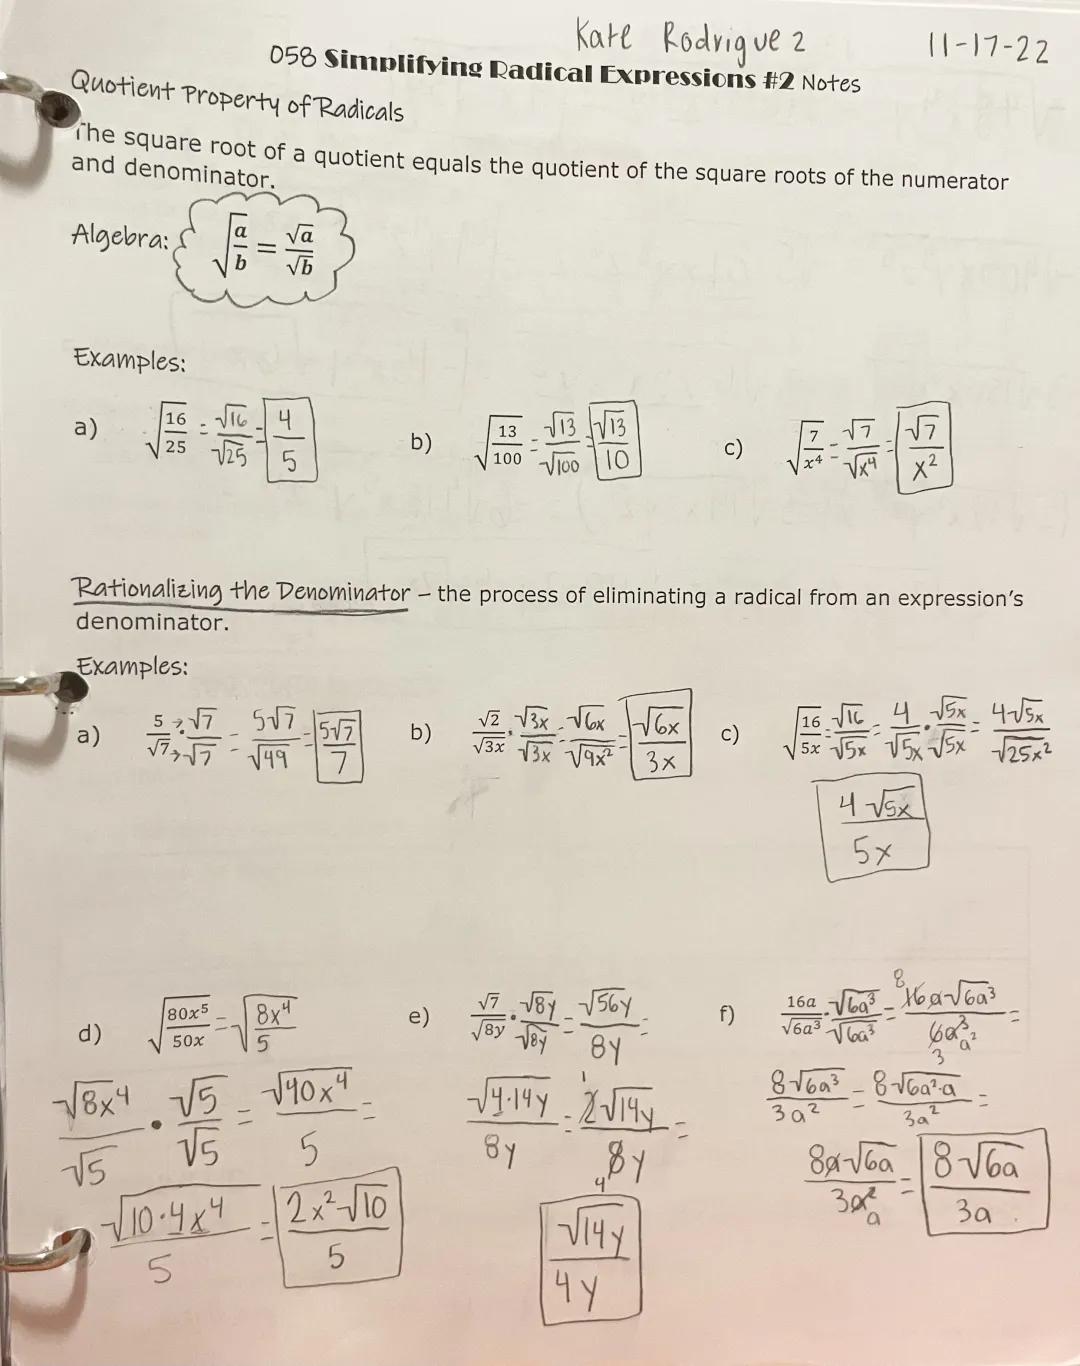 Kate Rodriguez 11-17-22
058 Simplifying Radical Expressions #2 Notes
Quotient Property of Radicals
The square root of a quotient equals the quotient of the square roots of the numerator
and denominator.
Algebra: √(a/b) = √a/√b
Examples:
a) √(16/25) = √16/√25 = 4/5
b) √(13/100) = √13/√100 = √13/10
c) √(7/x⁴) = √7/√x⁴ = √7/x²
Rationalizing the Denominator – the process of eliminating a radical from an expression's
denominator.
Examples:
a) 5/√7 · √7/√7 = 5√7/√49 = 5√7/7
b) √2/√3x · √3x/√3x = √6x/√9x² = √6x/3x
c) √(16/5x) = √16/√5x = 4/√5x · √5x/√5x = 4√5x/√25x²
4√5x/5x
d) √(80x⁵/50x) = √(8x⁴/5)
√8x⁴/√5 · √5/√5 = √40x⁴/5 =
√10·4x⁴/5 = 2x²√10/5
e) √7/√8y · √8y/√8y = √56y/8y =
√4·14y/8y = 2√14y/8y =
1
4
√14y/4y
f) 16a/√6a³ · √6a³/√6a³ = 16a√6a³/6a³ =
8
3 a²
8√6a³/3a² = 8√6a²·a/3a² =
8a√6a/3a² = 8√6a/3a
a